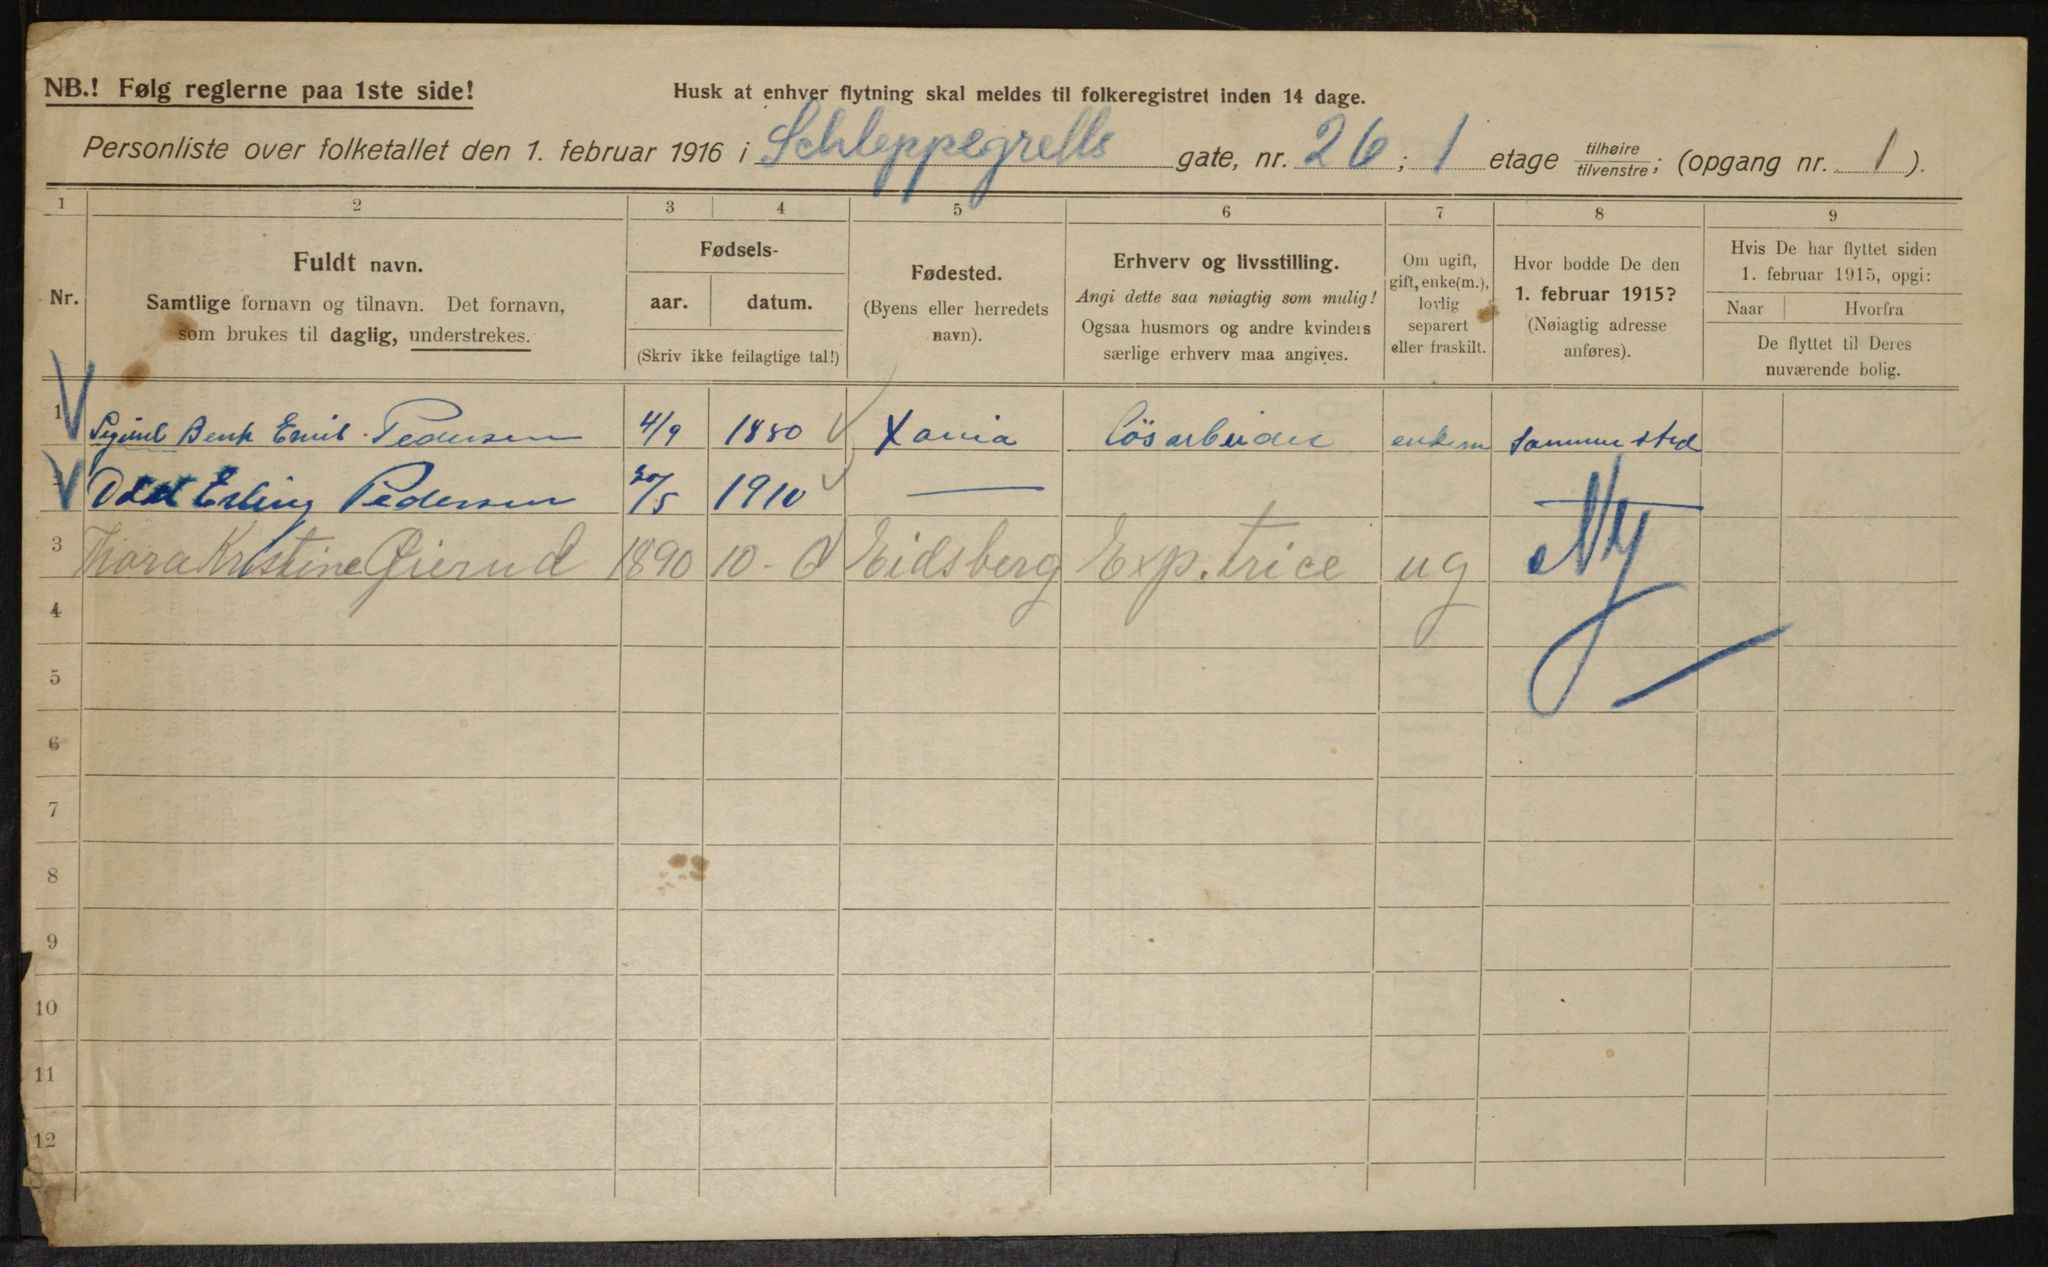 NB.! Følg reglerne paa 1ste side!
Husk at enhver flytning skal meldes til folkeregistret inden 14 dage.
Personliste over folketallet den 1. februar 1916 i Schleppegrells gate, nr. 26; 1 etage tilhøire/tilvenstre; (opgang nr. 1).
1 2 3 4 5 6 7 8 9
Nr.
Fuldt navn.
Samtlige fornavn og tilnavn. Det fornavn,
som brukes til daglig, understrekes.
Fødsels-
aar. datum.
(Skriv ikke feilagtige tal!)
Fødested.
(Byens eller herredets
navn).
Erhverv og livsstilling.
Angi dette saa nøiagtig som mulig!
Ogsaa husmors og andre kvinders
særlige erhverv maa angives.
Om ugift,
gift, enke(m.),
lovlig
separert
eller fraskilt.
Hvor bodde De den
1. februar 1915?
(Nøiagtig adresse
anføres).
Hvis De har flyttet siden
1. februar 1915, opgi:
Naar Hvorfra
De flyttet til Deres
nuværende bolig.
1 Bent Emil Pedersen 4/9 1880 Xania Løsarbeider enkem sammested
2 Odd Erling Pedersen 20/5 1910 —
3 Thora Kristine Øierud 1890 10- Eidsberg Exp.trice ug Ny
4
5
6
7
8
9
10
11
12